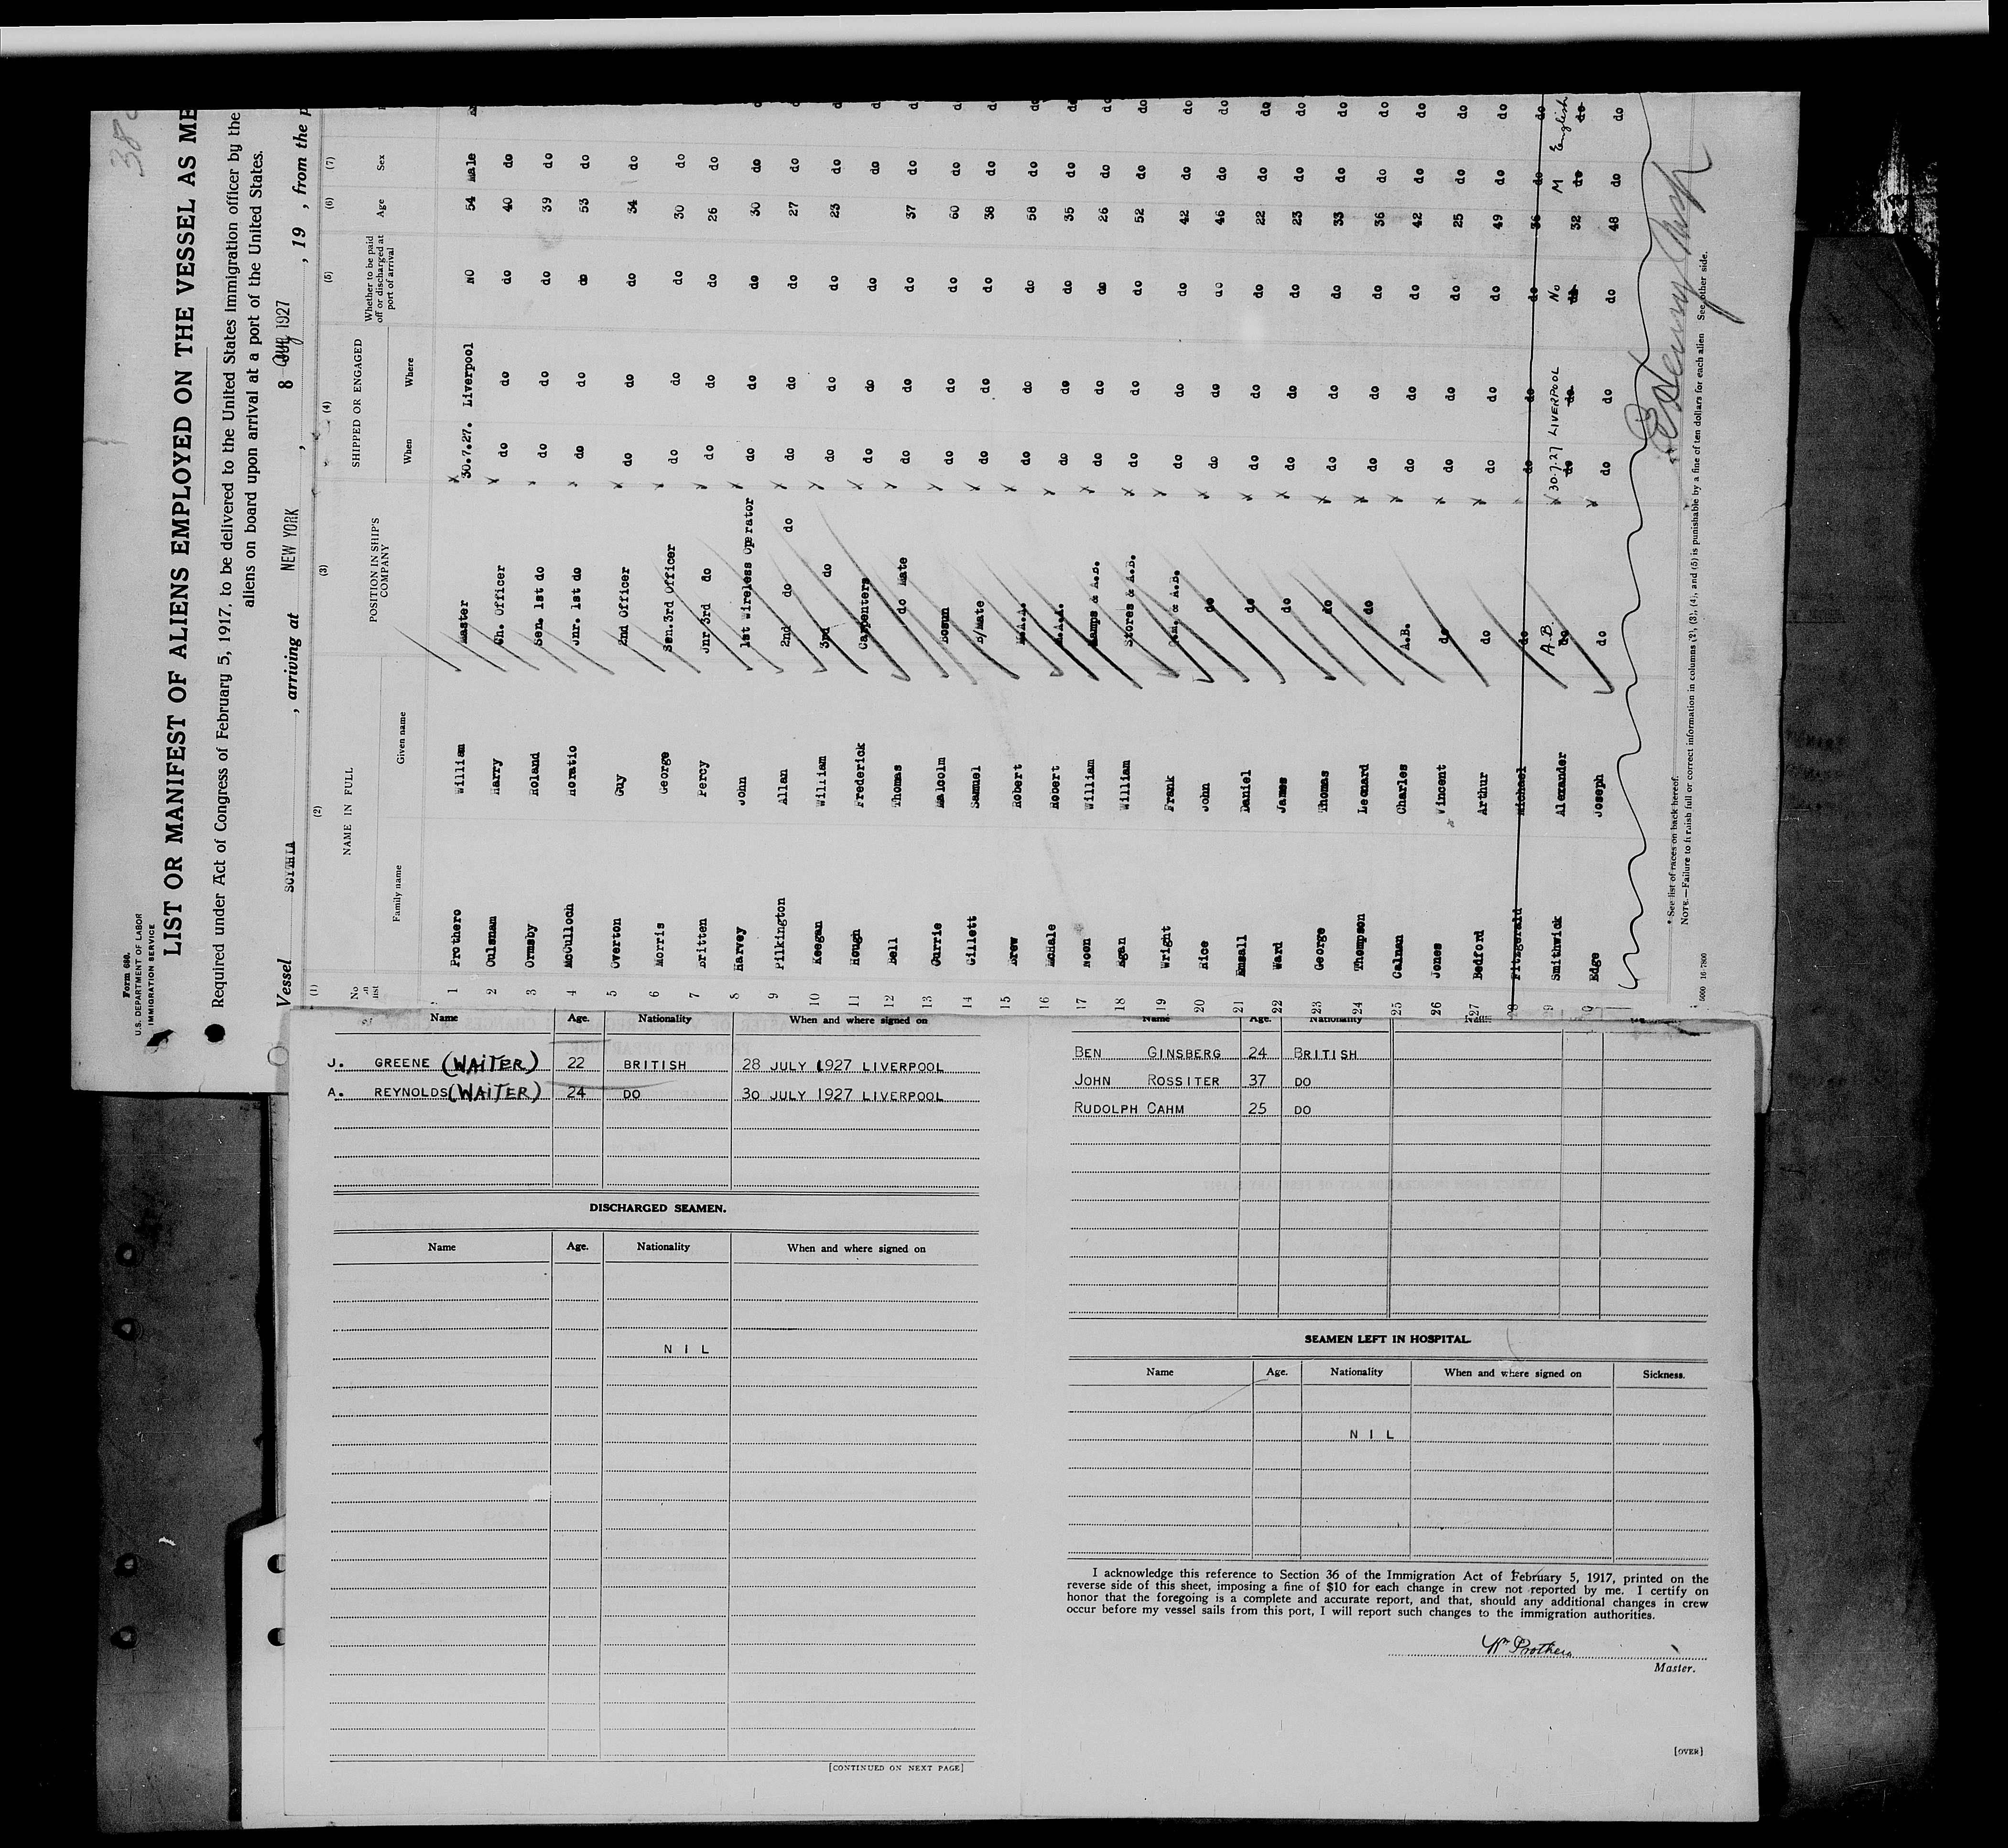 Form 680.
U.S. DEPARTMENT OF LABOR
IMMIGRATION SERVICE
LIST OR MANIFEST OF ALIENS EMPLOYED ON THE VESSEL AS ME
Required under Act of Congress of February 5, 1917, to be delivered to the United States immigration officer by the
aliens on board upon arrival at a port of the United States.
Vessel SCYTHIA , arriving at NEW YORK , 8 Aug 1927 , 19 , from the p
(1) (2) (3) (4) (5) (6) (7)
No on list NAME IN FULL POSITION IN SHIP'S COMPANY SHIPPED OR ENGAGED Whether to be paid off or discharged at port of arrival Age Sex
Family name Given name When Where
1 Prothero William Master 30.7.27. Liverpool NO 54 Male
2 Oulsnam Harry Ch. Officer do do do 40 do
3 Ormsby Roland Sen. 1st do do do do 39 do do
4 McCulloch Horatio Jnr. 1st do do do do 53 do
5 Overton Guy 2nd Officer do do do 34 do
6 Morris George Sen.3rd Officer do do do 30 do
7 Britten Percy Jnr 3rd do do do do 26 do
8 Harvey John 1st Wireless Operator do do do 30 do do
9 Pilkington Allan 2nd do do do do do 27 do
10 Keegan William 3rd do do do do 23 do do
11 Hough Frederick Carpenters do do do do do
12 Bell Thomas do Mate do do do 37 do do
13 Currie Malcolm Bosun do do do 60 do do
14 Gillett Samuel B/Mate do do do 38 do do
15 Drew Robert M.A.A. do do do 58 do do
16 McHale Robert M.A.A. do do do 35 do do
17 Noen William Lamps & A.B. do do do 26 do do
18 Egan William Stores & A.B. do do do 52 do do
19 Wright Frank & A.B. do do do 42 do do
20 Rice John do do do do 46 do do
21 Emsall Daniel do do do do 22 do do
22 Ward James do do do do 23 do do
23 George Thomas do do do do 33 do do
24 Thompson Leonard do do do do 36 do do
25 Calnan Charles A.B. do do do 42 do do
26 Jones Vincent do do do do 25 do do
27 Bedford Arthur do do do do 49 do do
28 Fitzgerald Michael do do do do 36 do do
A.B. 30.7.27 LIVERPOOL No M English
9 Smithwick Alexander do do do do 32 do do
0 Edge Joseph do do do do 48 do do
* See list of races on back hereof.
NOTE.—Failure to furnish full or correct information in columns (2), (3), (4), and (5) is punishable by a fine of ten dollars for each alien See other side.
Name Age. Nationality When and where signed on
J. GREENE (WAITER) 22 BRITISH 28 JULY 1927 LIVERPOOL
A. REYNOLDS (WAITER) 24 DO 30 JULY 1927 LIVERPOOL
DISCHARGED SEAMEN.
Name Age. Nationality When and where signed on
NIL
[CONTINUED ON NEXT PAGE]
Name Age. Nationality Name
BEN GINSBERG 24 BRITISH
JOHN ROSSITER 37 DO
RUDOLPH CAHM 25 DO
SEAMEN LEFT IN HOSPITAL.
Name Age. Nationality When and where signed on Sickness.
NIL
I acknowledge this reference to Section 36 of the Immigration Act of February 5, 1917, printed on the
reverse side of this sheet, imposing a fine of $10 for each change in crew not reported by me. I certify on
honor that the foregoing is a complete and accurate report, and that, should any additional changes in crew
occur before my vessel sails from this port, I will report such changes to the immigration authorities.
Wm Prothero
Master.
[OVER]